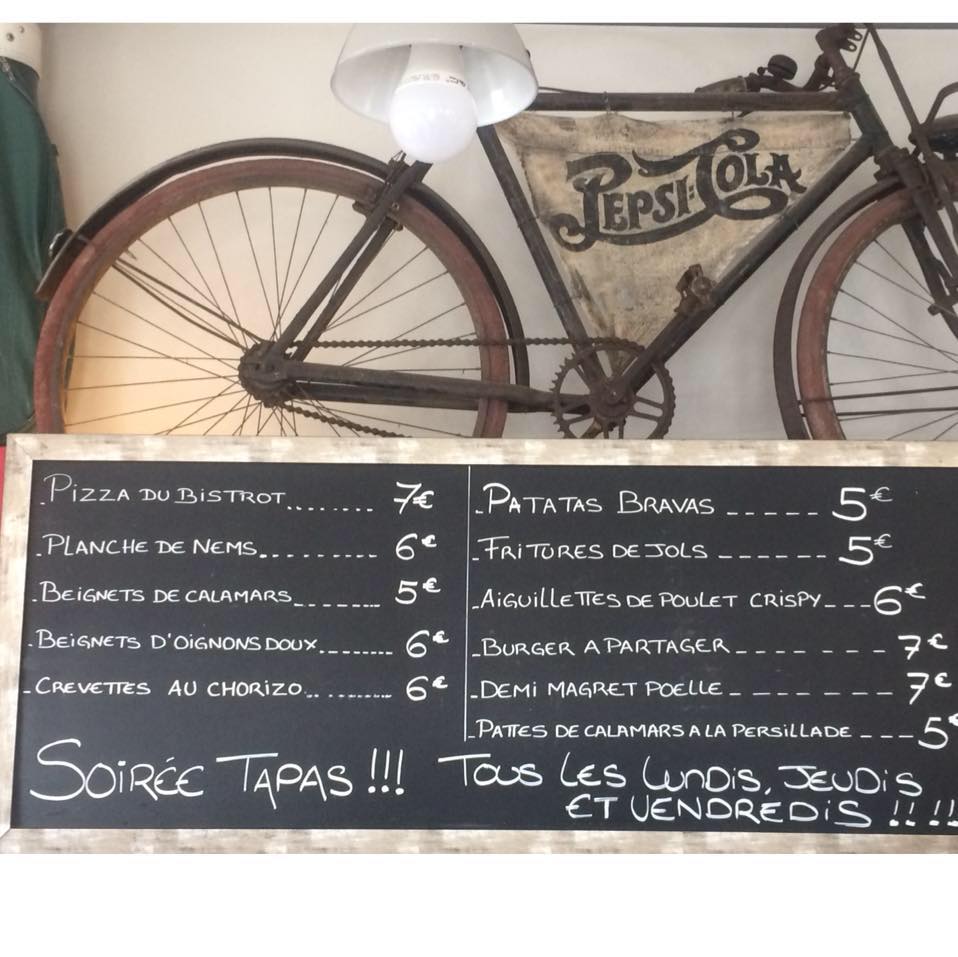 PEPSI:COLA
-PIZZA DU BISTROT........ 7€
-PLANCHE DE NEMS.......... 6€
-BEIGNETS DE CALAMARS........ 5€
-BEIGNETS D'OIGNONS DOUX........ 6€
-CREVETTES AU CHORIZO........... 6€
-PATATAS BRAVAS ----- 5€
-FRITURES DE JOLS ------ 5€
-AIGUILLETTES DE POULET CRISPY---6€
-BURGER A PARTAGER------- 7€
-DEMI MAGRET POELLE------- 7€
-PATTES DE CALAMARS A LA PERSILLADE ---5€
SOIRÉE TAPAS !!! TOUS LES LUNDIS, JEUDIS
ET VENDREDIS !! !!